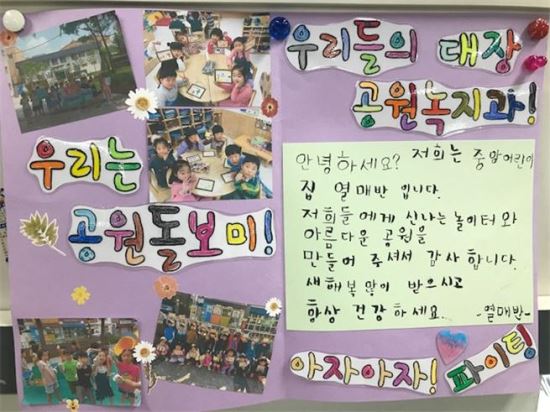 우리는
공원돌보미!
우리들의 대장
공원녹지과!
안녕하세요? 저희는 중앙어린이
집 열매반 입니다.
저희들에게 신나는 놀이터와
아름다운 공원을
만들어 주셔서 감사합니다.
새해복 많이 받으시고
항상 건강하세요. -열매반-
아자아자! 파이팅!